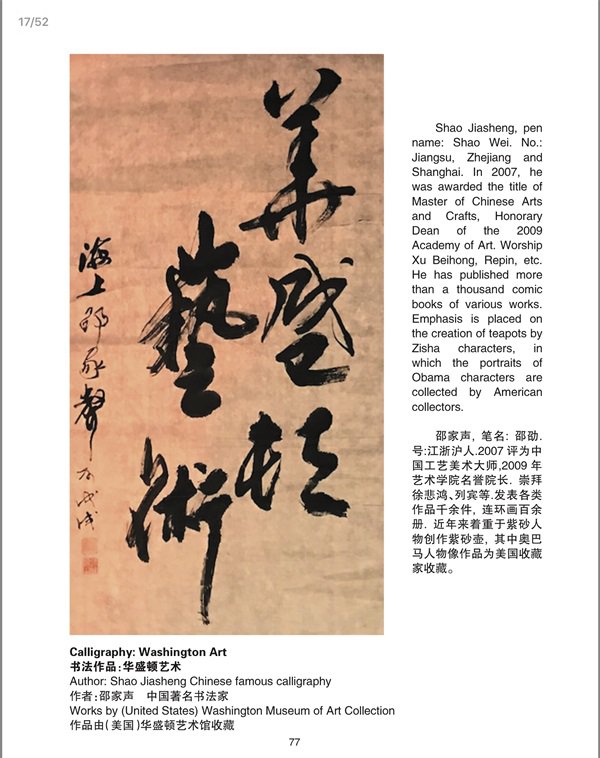 17/52
華
盛
頓
藝
術
海上邵家聲
戊戌
Shao Jiasheng, pen
name: Shao Wei. No.:
Jiangsu, Zhejiang and
Shanghai. In 2007, he
was awarded the title of
Master of Chinese Arts
and Crafts, Honorary
Dean of the 2009
Academy of Art. Worship
Xu Beihong, Repin, etc.
He has published more
than a thousand comic
books of various works.
Emphasis is placed on
the creation of teapots by
Zisha characters, in
which the portraits of
Obama characters are
collected by American
collectors.
邵家声, 笔名: 邵劭.
号:江浙沪人.2007 评为中
国工艺美术大师,2009 年
艺术学院名誉院长. 崇拜
徐悲鸿、列宾等.发表各类
作品千余件, 连环画百余
册. 近年来着重于紫砂人
物创作紫砂壶, 其中奥巴
马人物像作品为美国收藏
家收藏。
Calligraphy: Washington Art
书法作品:华盛顿艺术
Author: Shao Jiasheng Chinese famous calligraphy
作者:邵家声 中国著名书法家
Works by (United States) Washington Museum of Art Collection
作品由(美国)华盛顿艺术馆收藏
77